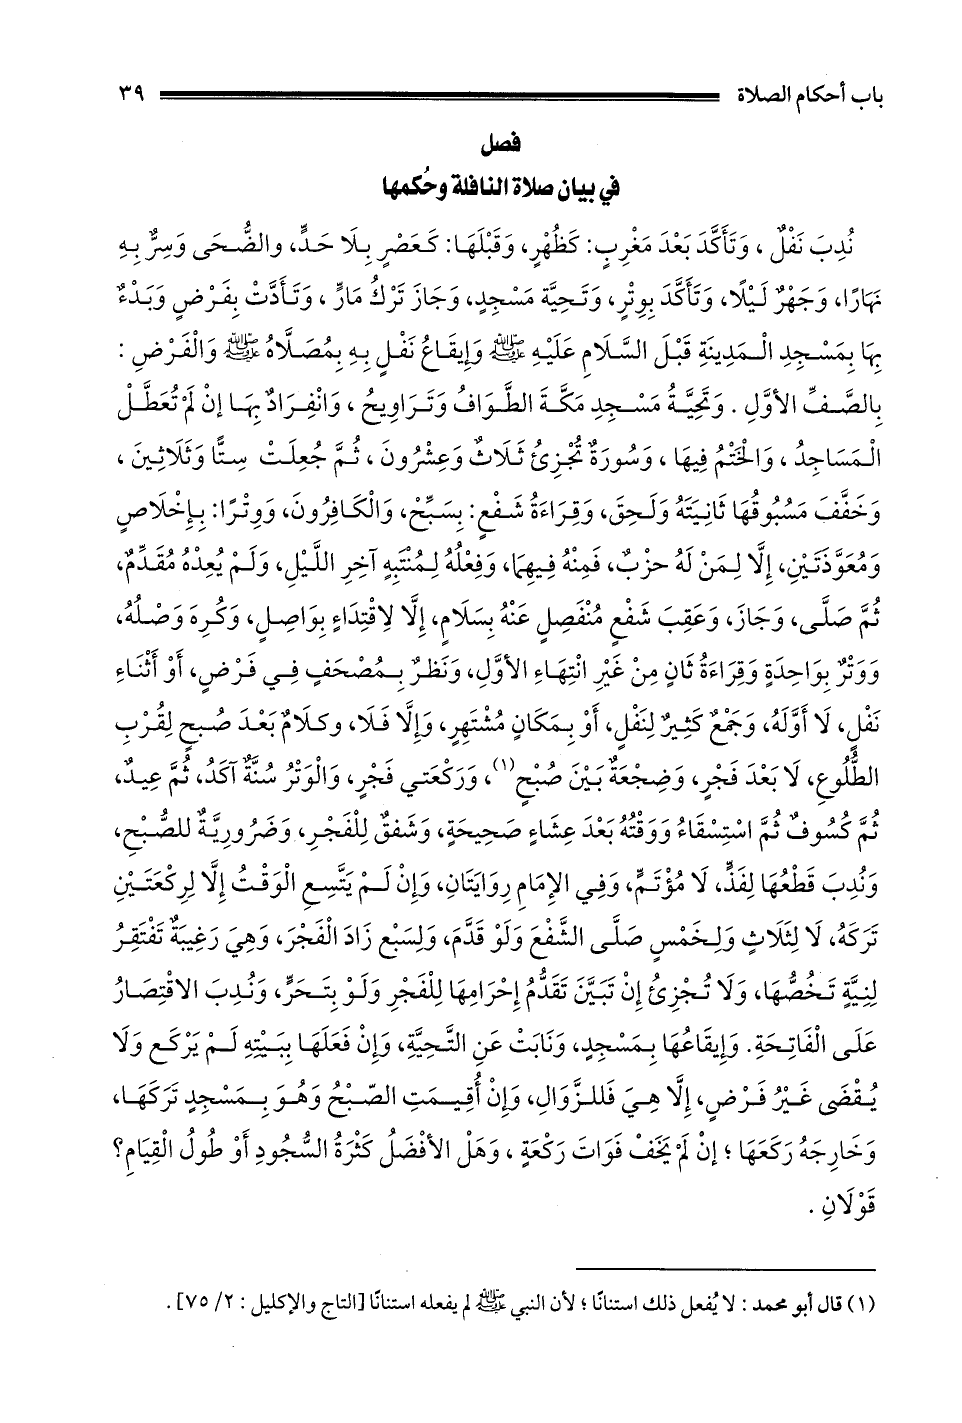 باب أحكام الصلاة ٣٩
فصل
في بيان صلاة النافلة وحُكمها
نُدِبَ نَفْلٌ ، وَتَأَكَّدَ بَعْدَ مَغْرِبٍ: كَظُهْرٍ، وَقَبْلَهَا: كَعَصْرٍ بِلَا حَدٍّ، والضُّحَى وَسِرٌّ بِهِ
نَهَارًا، وَجَهْرٌ لَيْلًا، وَتَأَكَّدَ بِوِتْرٍ، وَتَحِيَّةِ مَسْجِدٍ، وَجَازَ تَرْكُ مَارٍّ ، وَتَأَدَّتْ بِفَرْضٍ وَبَدْءٌ
بِهَا بِمَسْجِدِ الْمَدِينَةِ قَبْلَ السَّلَامِ عَلَيْهِ ﷺ وَإِيقَاعُ نَفْلٍ بِهِ بِمُصَلَّاهُ ﷺ وَالْفَرْضِ :
بِالصَّفِّ الأوَّلِ . وَتَحِيَّةُ مَسْجِدِ مَكَّةَ الطَّوَافُ وَتَرَاوِيحُ ، وَانْفِرَادٌ بِهَا إِنْ لَمْ تُعَطَّلْ
الْمَسَاجِدُ ، وَالْخَتْمُ فِيهَا ، وَسُورَةٌ تُجْزِئُ ثَلَاثٌ وَعِشْرُونَ ، ثُمَّ جُعِلَتْ سِتًّا وَثَلَاثِينَ ،
وَخَفَّفَ مَسْبُوقُهَا ثَانِيَتَهُ وَلَحِقَ، وَقِرَاءَةُ شَفْعٍ: بِسَبِّحْ، وَالْكَافِرُونَ، وَوِتْرًا: بِإِخْلَاصٍ
وَمُعَوِّذَتَيْنِ، إِلَّا لِمَنْ لَهُ حِزْبٌ، فَمِنْهُ فِيهِمَا، وَفِعْلُهُ لِمُنْتَبِهٍ آخِرِ اللَّيْلِ، وَلَمْ يُعِدْهُ مُقَدِّمٌ،
ثُمَّ صَلَّى، وَجَازَ، وَعَقِبَ شَفْعٍ مُنْفَصِلٍ عَنْهُ بِسَلَامٍ، إِلَّا لِاقْتِدَاءٍ بِوَاصِلٍ، وَكُرِهَ وَصْلُهُ،
وَوَتْرٌ بِوَاحِدَةٍ وَقِرَاءَةُ ثَانٍ مِنْ غَيْرِ انْتِهَاءِ الأوَّلِ، وَنَظَرٌ بِمُصْحَفٍ فِي فَرْضٍ، أَوْ أَثْنَاءِ
نَفْلٍ، لَا أَوَّلَهُ، وَجَمْعٌ كَثِيرٌ لِنَفْلٍ، أَوْ بِمَكَانٍ مُشْتَهِرٍ، وَإِلَّا فَلَا، وكَلَامٌ بَعْدَ صُبحٍ لِقُرْبِ
الطُّلُوعِ، لَا بَعْدَ فَجْرٍ، وَضِجْعَةٌ بَيْنَ صُبْحٍ(١)، وَرَكْعَتي فَجْرٍ، وَالْوَتْرُ سُنَّةٌ آكَدُ، ثُمَّ عِيدٌ،
ثُمَّ كُسُوفٌ ثُمَّ اسْتِسْقَاءُ وَوَقْتُهُ بَعْدَ عِشَاءٍ صَحِيحَةٍ، وَشَفَقٍ لِلْفَجْرِ، وَضَرُورِيَّةٌ للصُّبْحِ،
وَنُدِبَ قَطْعُهَا لِفَذٍّ، لَا مُؤْتَمٍّ، وَفِي الإمَامِ رِوَايَتَانِ، وَإِنْ لَمْ يَتَّسِعِ الْوَقْتُ إِلَّا لِرِكْعَتَيْنِ
تَرَكَهُ، لَا لِثَلَاثٍ وَلِخَمْسٍ صَلَّى الشَّفْعَ وَلَوْ قَدَّمَ، وَلِسَبْعٍ زَادَ الْفَجْرَ، وَهِيَ رَغِيبَةٌ تَفْتَقِرُ
لِنِيَّةٍ تَخُصُّهَا، وَلَا تُجْزِئُ إِنْ تَبَيَّنَ تَقَدُّمُ إِحْرَامِهَا لِلْفَجْرِ وَلَوْ بِتَحَرٍّ، وَنُدِبَ الاقْتِصَارُ
عَلَى الْفَاتِحَةِ. وَإِيقَاعُهَا بِمَسْجِدٍ، وَنَابَتْ عَنِ التَّحِيَّةِ، وَإِنْ فَعَلَهَا بِبَيْتِهِ لَمْ يَرْكَعْ وَلَا
يُقْضَى غَيْرُ فَرْضٍ، إِلَّا هِيَ فَلِلزَّوَالِ، وَإِنْ أُقِيمَتِ الصُّبْحُ وَهُوَ بِمَسْجِدٍ تَرَكَهَا،
وَخَارِجَهُ رَكَعَهَا ؛ إِنْ لَمْ يَخَفْ فَوَاتَ رَكْعَةٍ ، وَهَلْ الأفْضَلُ كَثْرَةُ السُّجُودِ أَوْ طُولُ الْقِيَامِ؟
قَوْلَانِ .
(١) قال أبو محمد : لا يُفعل ذلك استنانًا ؛ لأن النبي ﷺ لم يفعله استنانًا [التاج والإكليل : ٢/ ٧٥] .